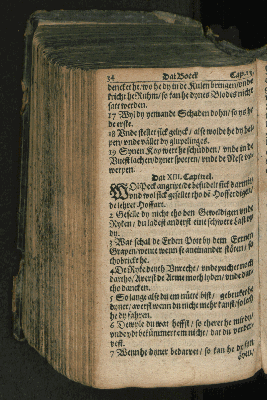 34 Dat Boeck Cap. 13.
dencket he, wo he dy in de Kulen bringen/ vnde
kricht he Ruhm/ so kan he dynes Blodes nicht
satt werden.
17 Wyl dy yemande Schaden dohn/ so ys he
de erste.
18 Vnde stellet sick gelyck/ alse wolde he dy hel-
pen/ vnde vället dy
19 Synen Kop wert he schüdden/ vnde in de
Vuest lachen/ dyner spotten/ vnde de Nese vp-
werpen.
Dat XIII. Capittel.
WOl Peck angript/ de besudelt sick darmit/
vnd wol sick gesellet tho dē Hofferdigen/
de lehret Hoffart.
2 Geselle dy nicht tho den Geweldigen vnde
Ryken/ du ladest anders eine schwere Last vp
dy.
3 Wat schal de Erden Pott by dem Eernen
Grapen/ wente wenn se aneinander stöten/ so
thobrickt he.
4 De Ryke deyth Vnrecht/ vnde puchet noch
dartho/ Auerst de Arme moth lyden/ vnde dar
tho dancken.
5 So lange alse du em nütte bist/ gebruket he
dyner/ auerst wenn du nicht mehr kanst/ so leth
he dy fahren.
6 Dewyle du wat heffst/ so theret he mit dy/
vnde ydt bekümmert em nicht/ dat du vorder-
uest.
7 Wenn he dyner bedaruet/ so kan he dy fyn